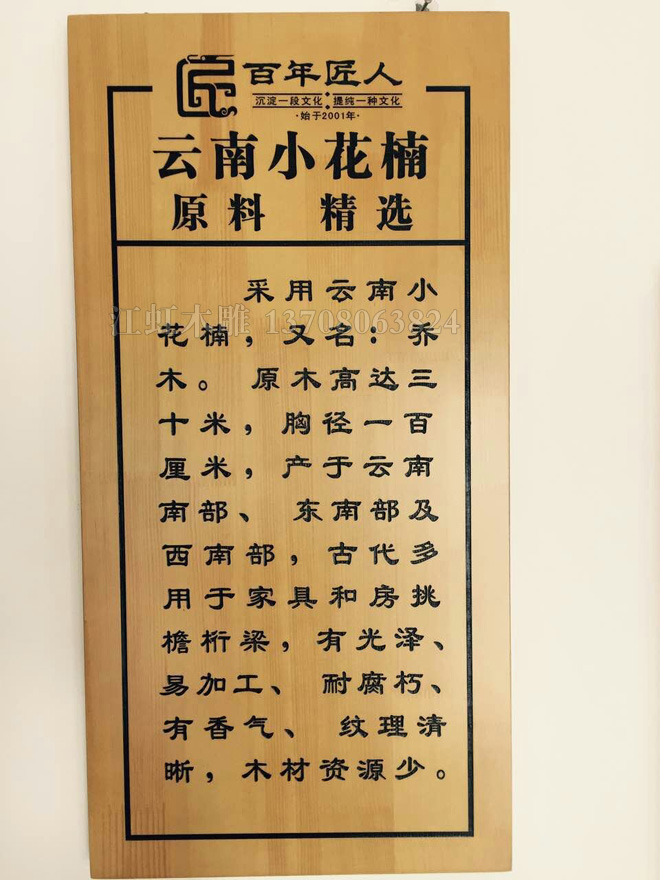 匠 百年匠人
沉淀一段文化 提纯一种文化
·始于2001年·
云南小花楠
原料 精选
采用云南小
江虹木雕 13708063824
花楠，又名：乔
木。原木高达三
十米，胸径一百
厘米，产于云南
南部、东南部及
西南部，古代多
用于家具和房挑
檐桁梁，有光泽、
易加工、耐腐朽、
有香气、纹理清
晰，木材资源少。